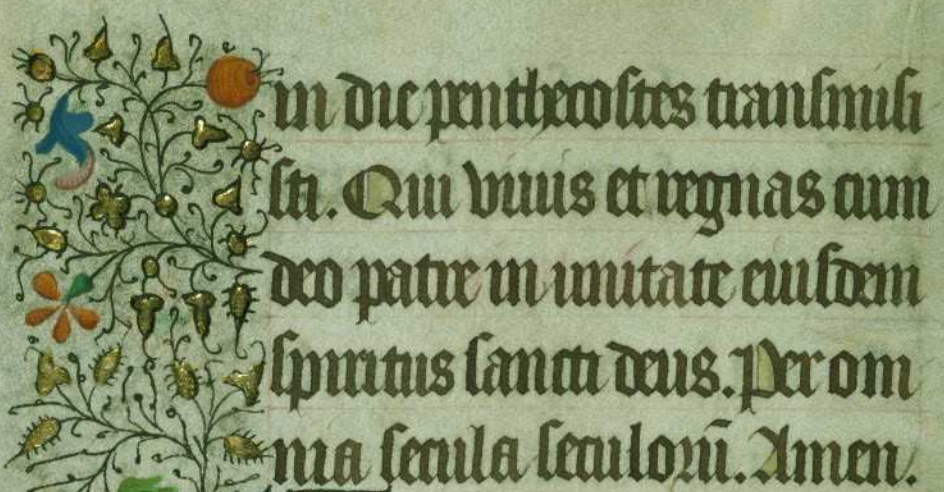 in die penthecostes transmisi
sti. Qui viuis et regnas cum
deo patre in unitate eiusdem
spiritus sancti deus. Per om
nia secula seculorū. Amen.